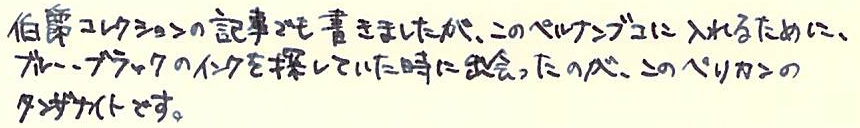 伯爵コレクションの記事でも書きましたが、このペルナンブコに入れるために、
ブルー・ブラックのインクを探していた時に出会ったのが、このペリカンの
タンザナイトです。